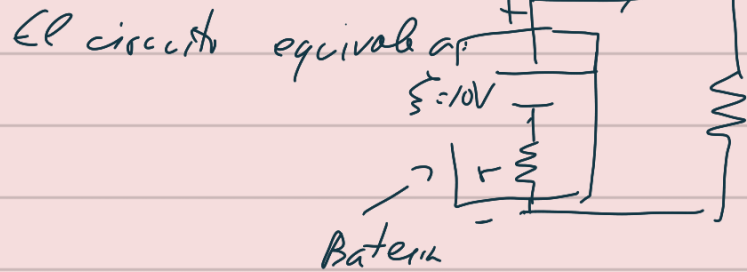 +
El circuito equivale a:
ξ=10V
r
-
Bateria